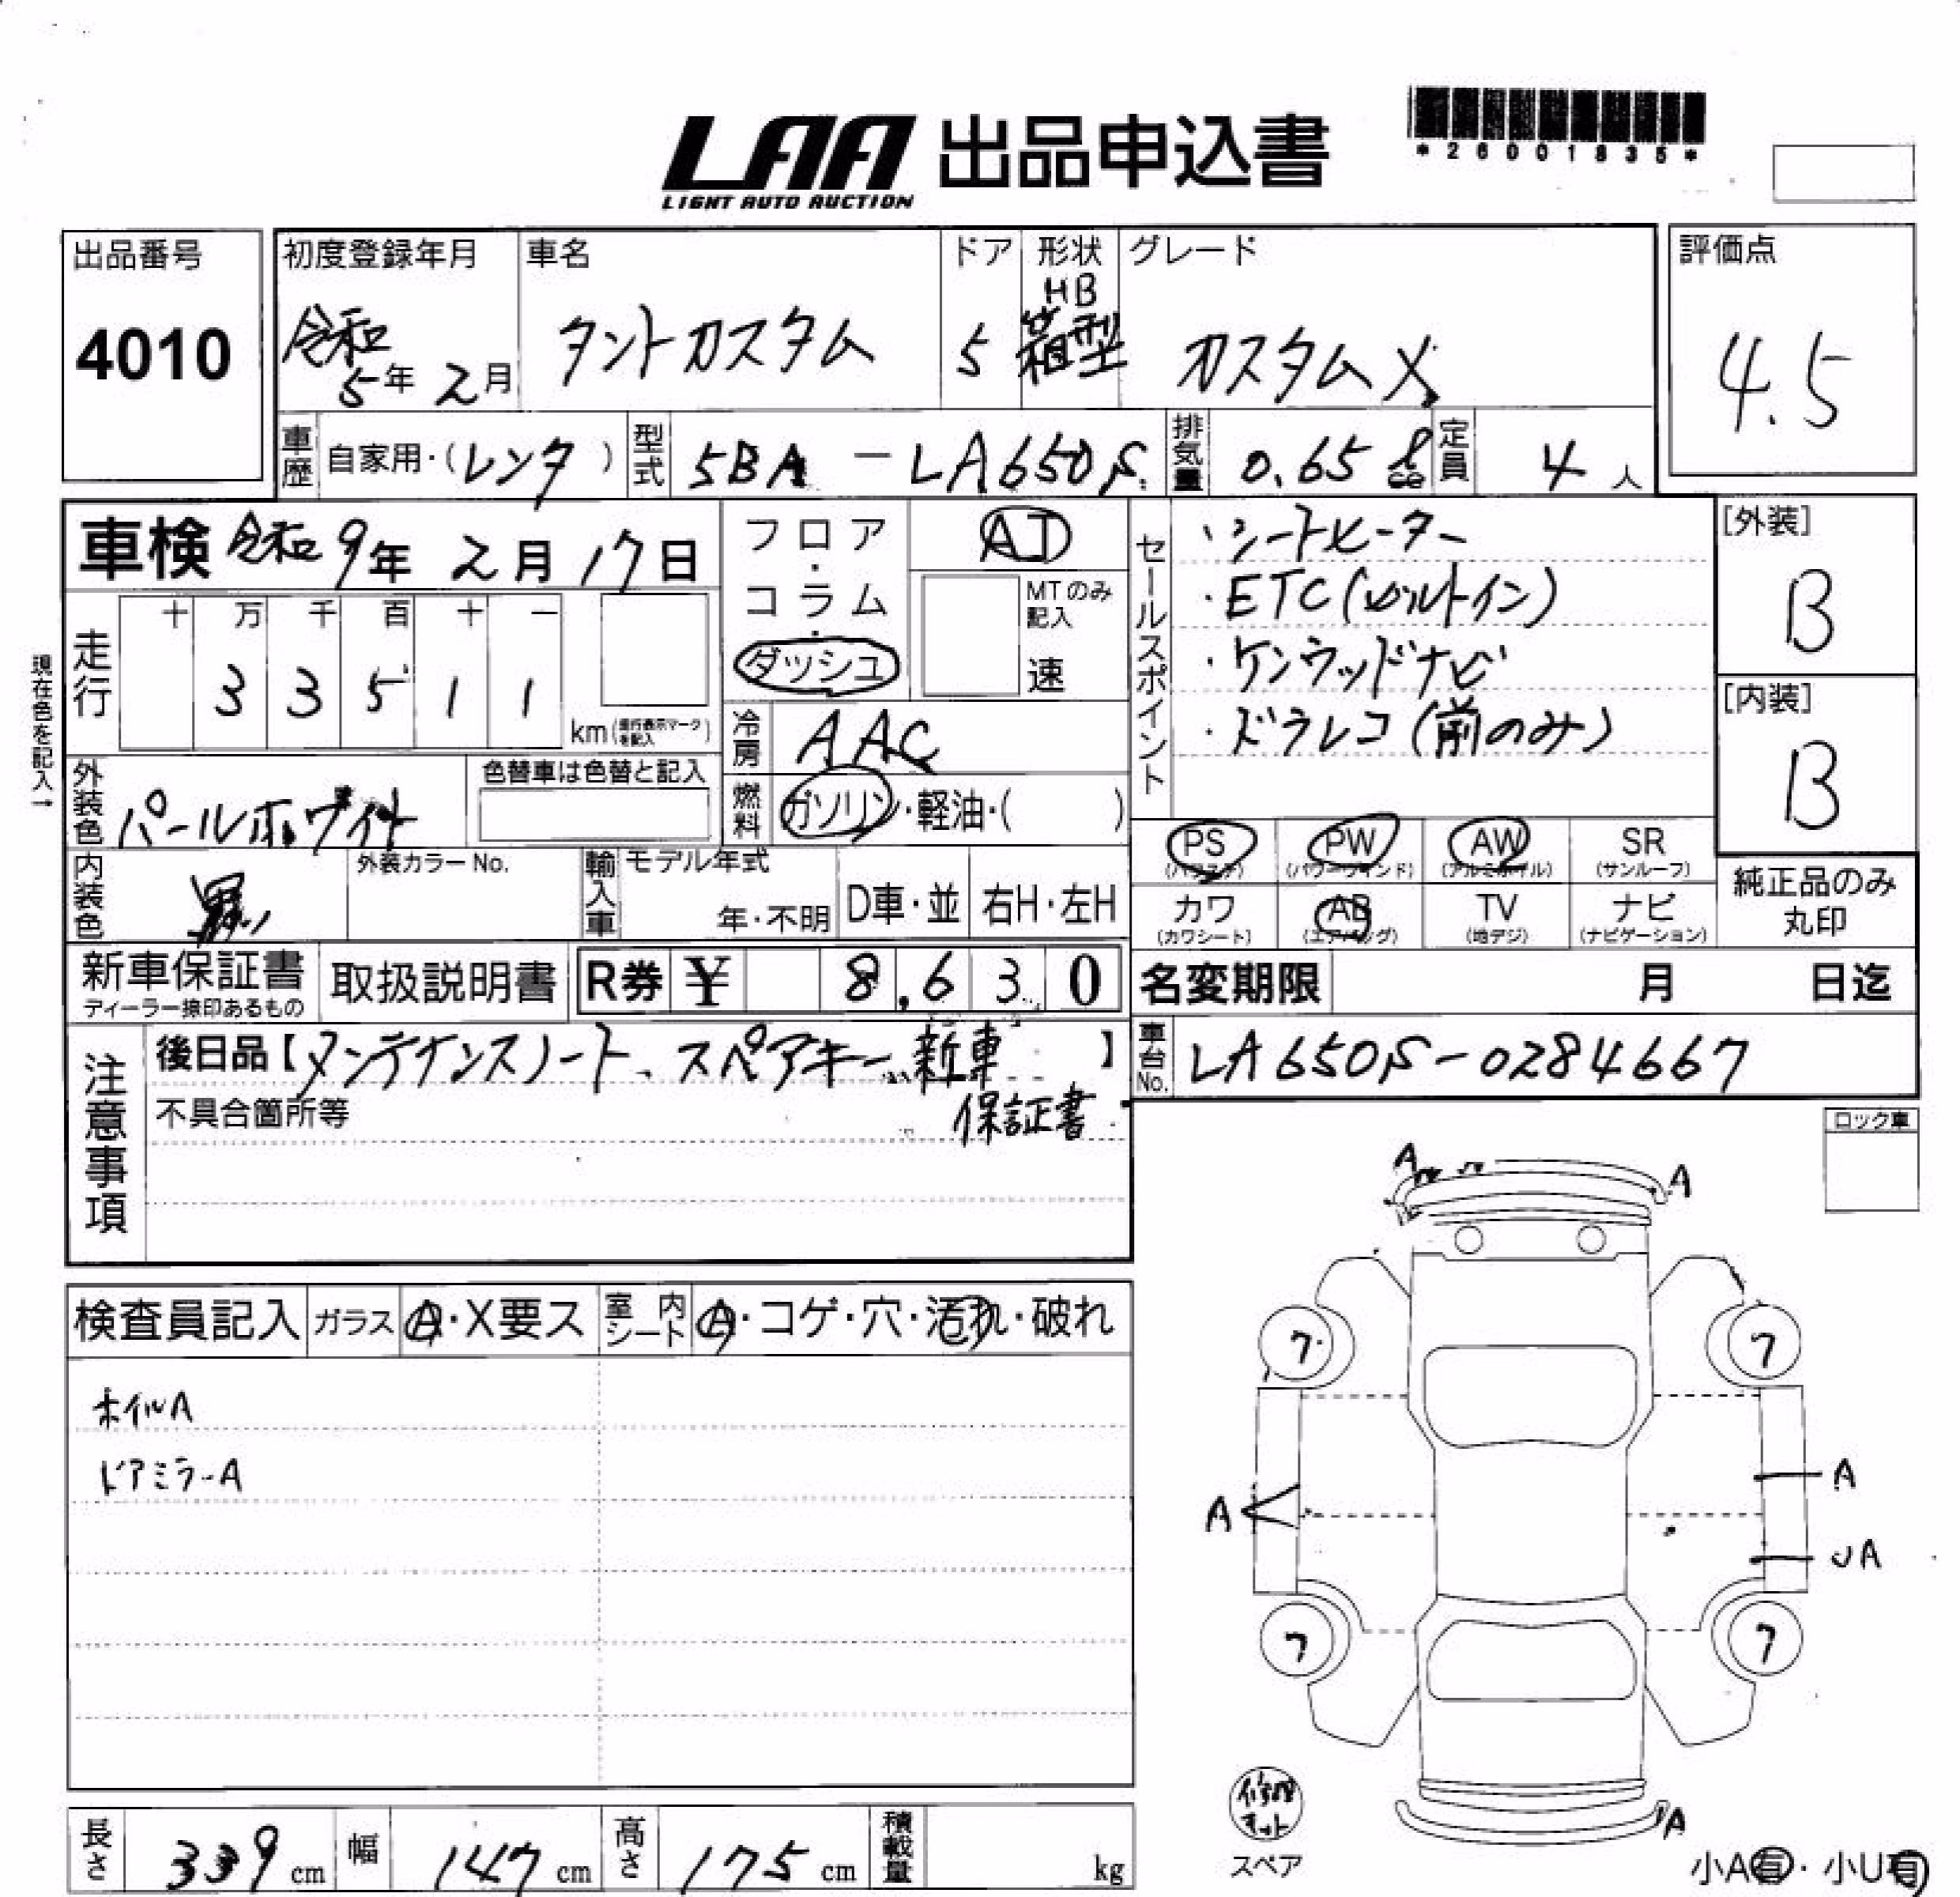 LAA 出品申込書
LIGHT AUTO AUCTION
*26001835*
出品番号
4010
初度登録年月
令和
5年 2月
車名
タントカスタム
ドア
5
形状
HB
箱型
グレード
カスタムX
評価点
4.5
車歴 自家用・(レンタ)
型式 5BA-LA650S
排気量 0.65 ℓ
定員 4 人
車検 令和9年 2月 17日
フロア・コラム・ダッシュ
AT
MTのみ記入
速
走行
十 万 千 百 十 一
3 3 5 1 1
km(走行表示マークを記入)
現在色を記入→
冷房 AAC
燃料 ガソリン・軽油・( )
外装色 パールホワイト
色替車は色替と記入
内装色 黒
外装カラーNo.
輸入車 モデル年式
年・不明
D車・並
右H・左H
セールスポイント
・シートヒーター
・ETC(ビルトイン)
・ケンウッドナビ
・ドラレコ(前のみ)
[外装]
B
[内装]
B
PS (パワステ)
PW (パワーウインド)
AW (アルミホイル)
SR (サンルーフ)
カワ (カワシート)
AB (エアバッグ)
TV (地デジ)
ナビ (ナビゲーション)
純正品のみ
丸印
新車保証書
ディーラー捺印あるもの
取扱説明書
R券 ¥ 8,630
名変期限 月 日迄
車台No. LA650S-0284667
注意事項
後日品【メンテナンスノート、スペアキー、新車】
保証書
不具合箇所等
ロック車
検査員記入
ガラス A・X要ス
室内シート A・コゲ・穴・汚れ・破れ
ホイルA
ドアミラーA
A
A
7
7
A
A
UA
7
7
A
修理キット
スペア
小A有・小U有
長さ 339 cm
幅 147 cm
高さ 175 cm
積載量 kg